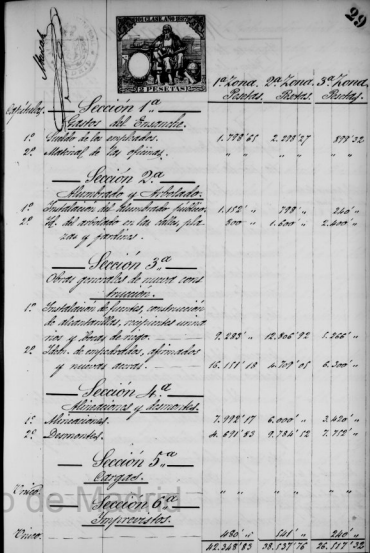 29
11ª CLASE. AÑO 1887
2 PESETAS
1ª Zona. 2ª Zona. 3ª Zona
Pesetas. Pesetas. Pesetas.
Capítulos. Sección 1ª
Gastos del Ensanche
1º Sueldo de los empleados. 1.788'65 2.278'27 878'32
2º Material de las oficinas. " " " " " "
Sección 2ª
Alumbrado y Arbolado.
1º Instalación del Alumbrado público. 1.182 " 798 " 240 "
2º Id. del arbolado en las calles, pla
zas y jardines. 500 " 1.600 " 2.400 "
Sección 3ª
Obras generales de nueva cons
trucción.
1º Instalación de fuentes, construcción
de alcantarillas,
y bocas de riego. 9.283 " 12.806'92 1.266 "
2º Idem. de empedrados, afirmados
y nuevas aceras. 16.151'18 4.709'05 6.300 "
Sección 4ª
Alineaciones y desmontes.
1º Alineaciones. 7.992'17 6.000 " 3.420 "
2º Desmontes. 4.691'83 9.784'12 7.712 "
Sección 5ª
Cargas.
Único. " " " " " "
Sección 6ª
Imprevistos.
Único. 480 " 141 " 240 "
42.348'83 38.137'76 26.117'32
o de Madrid